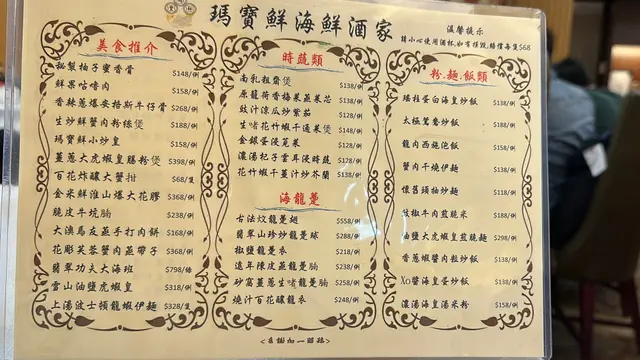 瑪寶鮮海鮮酒家
溫馨提示
請小心使用酒杯,如有損毀,賠償每隻$68
美食推介
秘製柚子蜜香骨 $148/例
鮮果咕嚕肉 $158/例
香辣蔥爆安格斯牛仔骨 $268/例
生炒鮮蟹肉粉絲煲 $188/例
瑪寶鮮小炒皇 $158/例
薑蔥大虎蝦皇腸粉煲 $398/例
百花炸釀大蟹拑 $68/隻
金米鮮淮山爆大花膠 $368/例
脆皮牛坑腩 $238/例
大澳馬友蒸手打肉餅 $168/例
花彫芙蓉蟹肉蒸帶子 $368/例
翡翠功夫大海斑 $798/條
富山油鹽虎蝦皇 $318/例
上湯波士頓龍蝦伊麵 $328/隻
時蔬類
南乳粗齋煲 $138/例
原籠荷香梅菜蒸菜芯 $138/例
豉汁涼瓜炒紫茄 $128/例
生啫花竹蝦干通菜煲 $148/例
金銀蛋浸莧菜 $128/例
濃湯杞子雲耳浸時蔬 $138/例
花竹蝦干薑汁炒芥蘭 $138/例
海龍躉
古法炆龍躉翅 $558/例
翡翠山珍炒龍躉球 $288/例
椒鹽龍躉衣 $218/例
遠年陳皮蒸龍躉腩 $238/例
砂窩薑蔥生啫龍躉腩 $258/例
燒汁百花釀龍衣 $248/例
粉.麵.飯類
瑤柱蛋白海皇炒飯 $138/例
太極鴛鴦炒飯 $188/例
龍肉西施泡飯 $158/例
蟹肉干燒伊麵 $138/例
懷舊頭抽炒麵 $118/例
豉椒牛肉煎脆米 $188/例
油鹽大虎蝦皇煎脆麵 $298/例
香蔥蝦醬肉粒炒飯 $138/例
Xo醬海皇蛋炒飯 $158/例
濃湯海皇湯米粉 $158/例
<多謝加一服務>